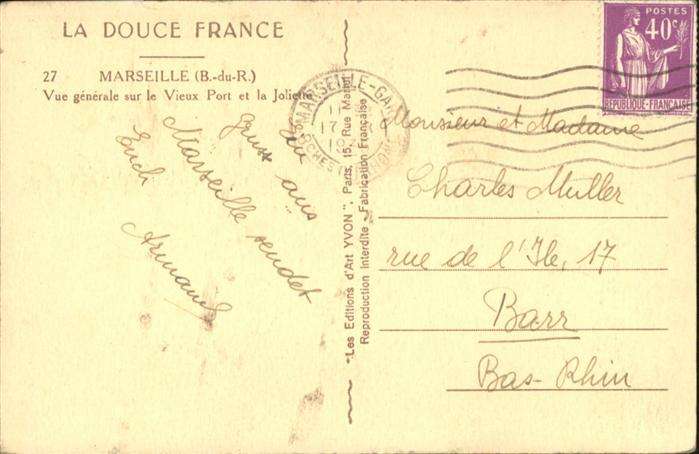 LA DOUCE FRANCE
27 MARSEILLE (B.-du-R.)
Vue générale sur le Vieux Port et la Joliette
aus
Marseille sendet
Euch
Armand
"Les Editions d'Art YVON". Paris, 15, Rue Martel
Reproduction Interdite - Fabrication Française
MARSEILLE-GARE
17
POSTES
40c
REPUBLIQUE-FRANÇAISE
Monsieur et Madame
Charles Muller
rue de l'Ile, 17
Barr
Bas-Rhin